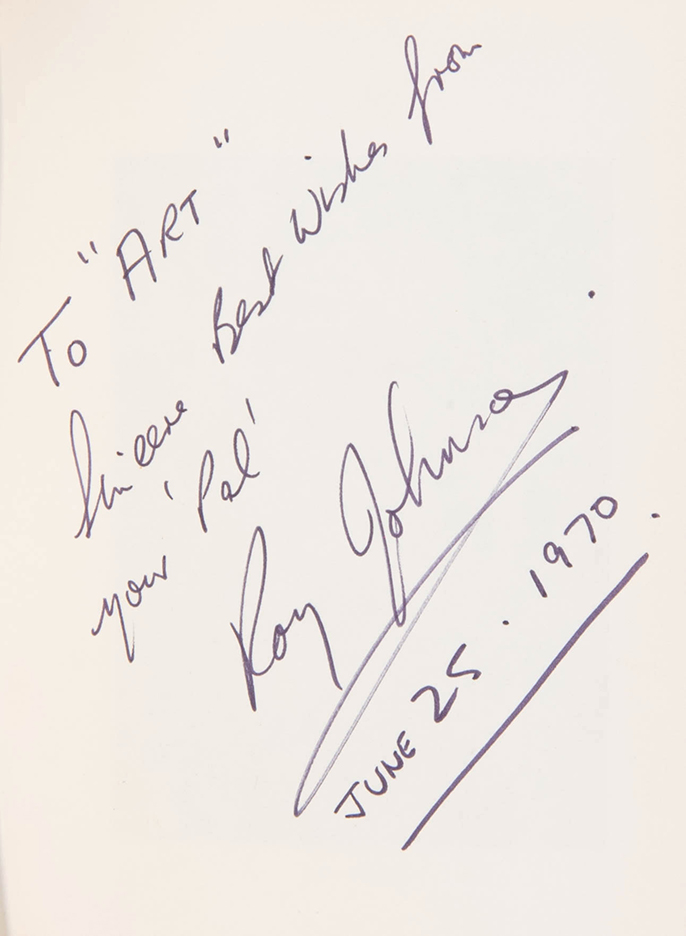 To "ART"
Sincere Best Wishes from
your 'Pal'
Roy Johnson.
JUNE 25. 1970.